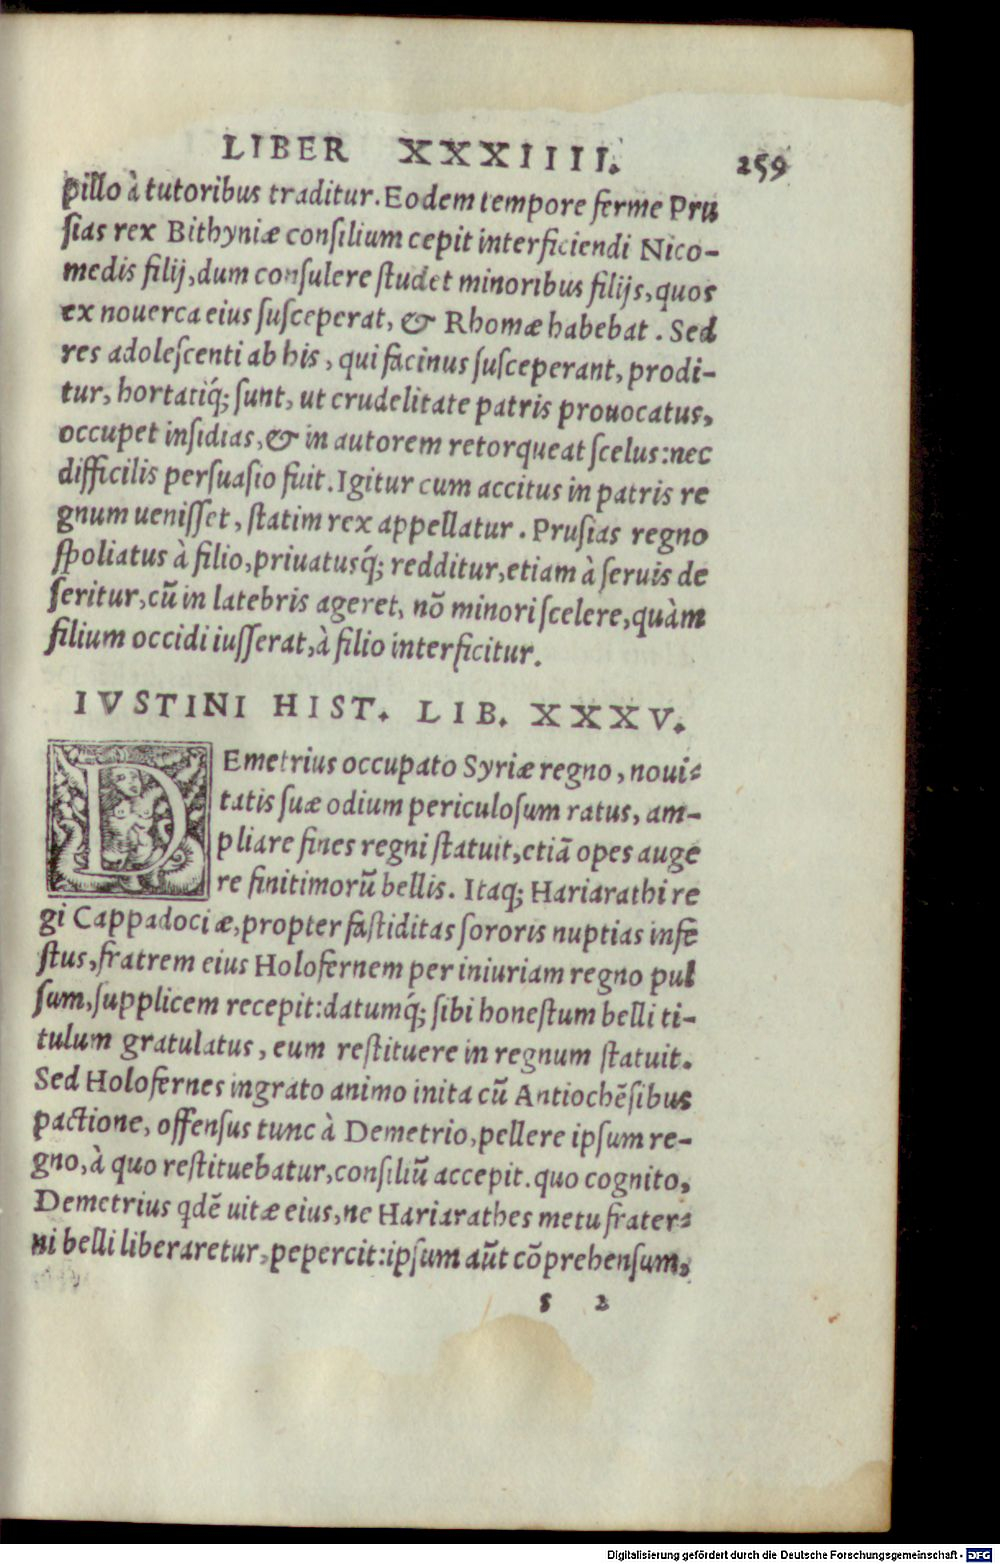 LIBER XXXIIII. 259
pillo à tutoribus traditur. Eodem tempore ferme Pru
ſias rex Bithyniæ conſilium cepit interficiendi Nico-
medis filij, dum conſulere ſtudet minoribus filijs, quos
ex nouerca eius ſuſceperat, & Rhomæ habebat. Sed
res adoleſcenti ab his, qui facinus ſuſceperant, prodi-
tur, hortatiq́; ſunt, ut crudelitate patris prouocatus,
occupet inſidias, & in autorem retorqueat ſcelus: nec
difficilis perſuaſio fuit. Igitur cum accitus in patris re
gnum ueniſſet, ſtatim rex appellatur. Pruſias regno
ſpoliatus à filio, priuatusq́; redditur, etiam à ſeruis de
ſeritur, cũ in latebris ageret, nõ minori ſcelere, quàm
filium occidi iuſſerat, à filio interficitur.
IVSTINI HIST. LIB. XXXV.
DEmetrius occupato Syriæ regno, noui-
tatis ſuæ odium periculoſum ratus, am-
pliare fines regni ſtatuit, etiã opes auge
re finitimorũ bellis. Itaq; Hariarathi re
gi Cappadociæ, propter faſtiditas ſororis nuptias infe
ſtus, fratrem eius Holofernem per iniuriam regno pul
ſum, ſupplicem recepit: datumq́; ſibi honeſtum belli ti-
tulum gratulatus, eum reſtituere in regnum ſtatuit.
Sed Holofernes ingrato animo inita cũ Antiochẽſibus
pactione, offenſus tunc à Demetrio, pellere ipſum re-
gno, à quo reſtituebatur, conſiliũ accepit. quo cognito,
Demetrius qdẽ uitæ eius, ne Hariarathes metu frater-
ni belli liberaretur, pepercit: ipſum aũt cõprehenſum,
s 2
Digitalisierung gefördert durch die Deutsche Forschungsgemeinschaft - DFG